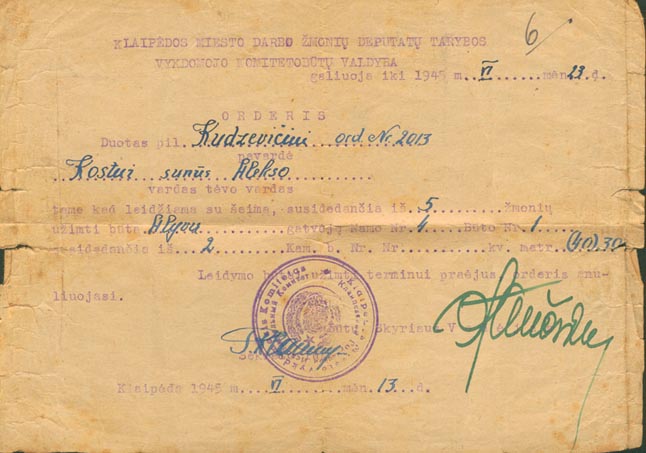 6
KLAIPĖDOS MIESTO DARBO ŽMONIŲ DEPUTATŲ TARYBOS
VYKDOMOJO KOMITETOBŪTŲ VALDYBA
galiuoja iki 1945 m. VI mėn. 23 d.
ORDERIS
Duotas pil. Kudzevičiui ord Nr 2013
pavardė
Kostui sunūs Alekso
vardas tėvo vardas
tame kad leidžiama su šeima, susidedančia iš 5 žmonių
užimti būtą Alyvų gatvoję Namo Nr 4 Buto Nr 1
susidedančia iš 2 Kam. b. Nr. Nr. kv. metr. (40).30
Leidymo užimti terminui praėjus orderis anu-
liuojasi.
Skyriaus V
Klaipėda 1945 m. VI mėn. 13 d.